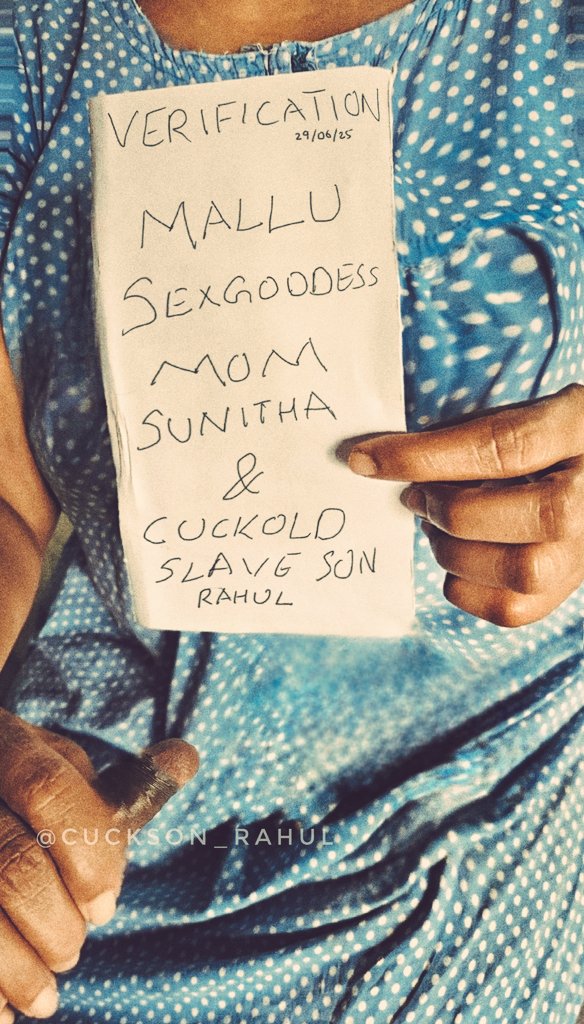 VERIFICATION
29/06/25
MALLU
SEXGODDESS
MOM
SUNITHA
&
CUCKOLD
SLAVE SON
RAHUL
@CUCKSON_RAHUL